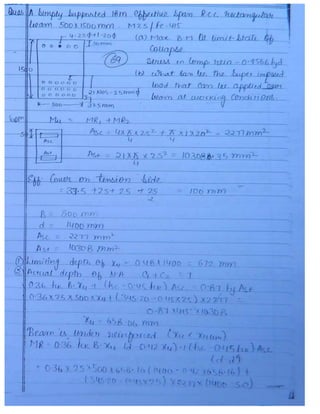 Ques: A simply supported 18m effective span R.C.C. rectangular
beam 500 x 1500mm M25 / Fe-415
4-25ϕ+1-20ϕ
50mm
(a) Max B.M at limit state of
collapse.
Stress in comp reinn = 0.4586 fyd
(b) What can be the super imposed
load that can be applied over
beam at working conditions
1500
21 NOS-25mmϕ
500
37.5mm
Solⁿ
Mu = MR1 + MR2
Asc = 4x π/4 x 25² + π/4 x 1x20² = 2277mm²
Asc
Ast
Ast = 21x π/4 x 25² = 10308.35 mm²
Eff. Cover on tension side
= 37.5 +25+ 25 + 25/2 = 100 mm
B = 500 mm
d = 1400 mm
Asc = 2277 mm²
Ast = 10308 mm²
① Limiting depth of xu = 0.48x1400 = 672 mm
② Actual depth of NA C1 + C2 = T
0.36 fck B.xu + (fsc - 0.45 fck) Asc = 0.87 fy Ast
0.36x25x500xxu + (345.20 - 0.45x25) x2277 =
0.87x415x10308
xu = 658.06 mm
Beam is under reinforced (xu < xulim)
MR = 0.36 fck B xu (d - 0.42 xu) + (fsc - 0.45 fck) Asc
(d - d')
= 0.36 x 25 x 500 x 658.16 (1400 - 0.42x658.16) +
(345.20 - 0.45x25) x 2277 (1400 - 50)